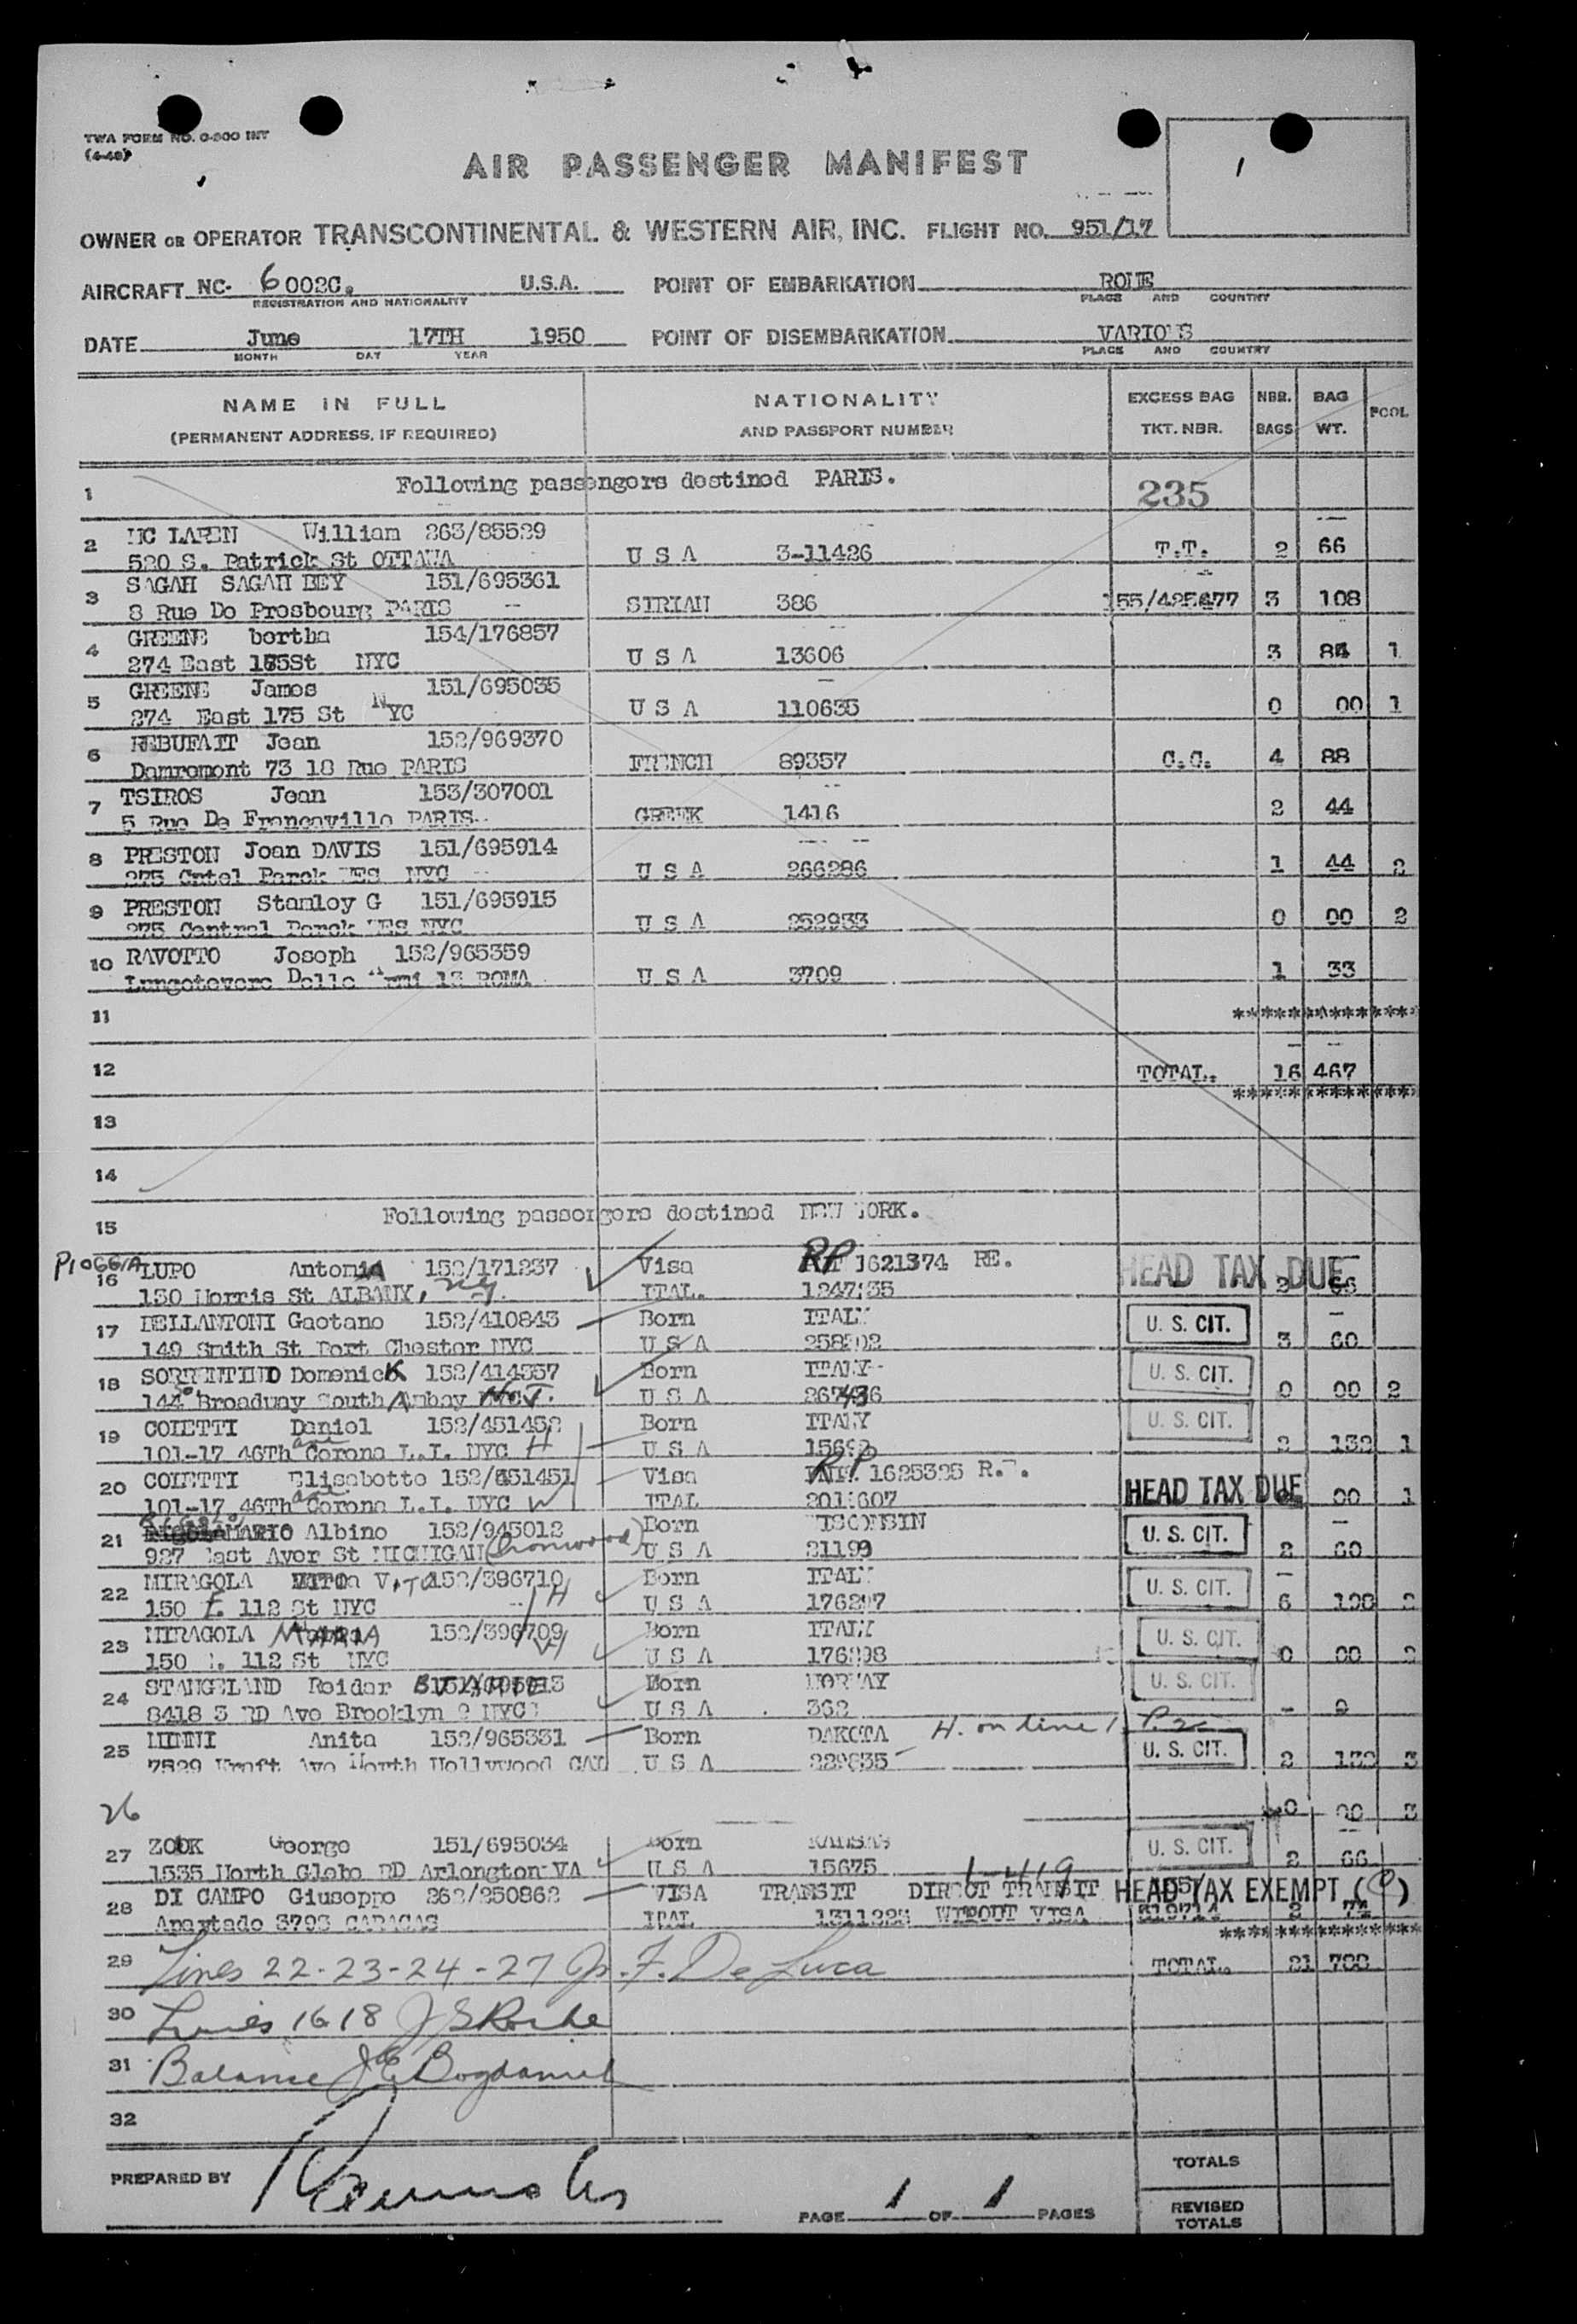 TWA FORM NO. O-800 INT
(4-48)
1
AIR PASSENGER MANIFEST
OWNER OR OPERATOR TRANSCONTINENTAL & WESTERN AIR, INC. FLIGHT NO. 951/17
AIRCRAFT NC- 6002C. U.S.A. POINT OF EMBARKATION ROME
REGISTRATION AND NATIONALITY PLACE AND COUNTRY
DATE June 17TH 1950 POINT OF DISEMBARKATION VARIOUS
MONTH DAY YEAR PLACE AND COUNTRY
NAME IN FULL NATIONALITY EXCESS BAG NBR. BAG POOL
(PERMANENT ADDRESS, IF REQUIRED) AND PASSPORT NUMBER TKT. NBR. BAGS WT.
1 Following passengers destined PARIS. 235
2 MC LAREN William 263/85529
520 S. Patrick St OTTAWA U S A 3-11426 T.T. 2 66
3 SAGAH SAGAH BEY 151/695361
8 Rue De Presbourg PARIS SIRIAN 386 155/425477 3 108
4 GREENE bertha 154/176857
274 East 175St NYC U S A 13606 3 84 1
5 GREENE James 151/695035
274 East 175 St NYC U S A 110635 0 00 1
6 REBUFAIT Jean 152/969370
Damremont 73 18 Rue PARIS FRENCH 89357 C.C. 4 88
7 TSIROS Jean 153/307001
5 Rue De Francaville PARIS GREEK 1416 2 44
8 PRESTON Joan DAVIS 151/695914
275 Cntel Parck WES NYC U S A 266286 1 44 2
9 PRESTON Stanley G 151/695915
275 Central Parck WES NYC U S A 252933 0 00 2
10 RAVOTTO Joseph 152/965359
Lungotevere Delle Armi 12 ROMA U S A 3709 1 33
11 *************
12 TOTAL. 16 467
*************
13
14
15 Following passengers destined NEW YORK.
PIOGGIA
16 LUPO Antonia 152/171237 Visa RP 1621374 RE. HEAD TAX DUE
130 Morris St ALBANY, NY. ITAL. 1247135 2 66
17 DELLANTONI Gaetano 152/410843 Born ITALY U. S. CIT.
149 Smith St Port Chester NYC U S A 258202 3 60
18 SORRENTINO Domenick 152/414357 Born ITALY U. S. CIT.
144 Broadway South Amboy N.J. U S A 267436 0 00 2
19 COLETTI Daniel 152/451452 Born ITALY U. S. CIT.
101-17 46Th ave Corona L.I. NYC H U S A 15692 2 132 1
20 COLETTI Elisabetto 152/451451 Visa RP 1625325 R.E. HEAD TAX DUE
101-17 46Th ave Corona L.I. NYC W ITAL 2011607 00 1
21 MARIO Albino 152/945012 Born WISCONSIN U. S. CIT.
927 East Ayer St MICHIGAN (Ironwood) U S A 21199 2 60
22 MIRAGOLA VITO 152/396710 Born ITALY U. S. CIT.
150 E. 112 St NYC H U S A 176297 6 198 2
23 MIRAGOLA MARIA 152/396709 Born ITALY U. S. CIT.
150 E. 112 St NYC W U S A 176298 0 00 2
24 STANGELAND Reidar Born NORWAY U. S. CIT.
8418 3 RD Ave Brooklyn 9 NYC U S A 362
25 MINNI Anita 152/965331 Born DAKOTA H. on line 1. P. 2 U. S. CIT.
7529 Kraft Ave North Hollywood CAL U S A 229835 2 132 3
26 0 00 3
27 ZOOK George 151/695034 Born KANSAS U. S. CIT.
1535 North Glebe RD Arlongton VA U S A 15675 2 66
1-419
28 DI CAMPO Giuseppe 262/250862 VISA TRANSIT DIRECT TRANSIT HEAD TAX EXEMPT (9)
Apartado 3793 CARACAS ITAL 1311225 WITOUT VISA 519714 2 74
*************
29 Lines 22-23-24-27 Jr. F. De Luca TOTAL. 21 788
30 Lines 16 18 J S Roche
31 Balance J E
32
PREPARED BY TOTALS
PAGE 1 OF 1 PAGES REVISED TOTALS